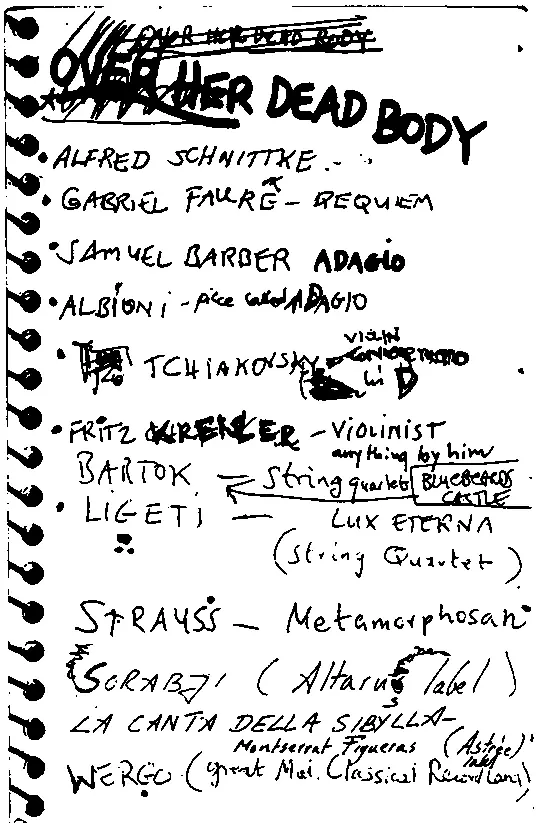 OVER HER DEAD BODY
OVER HER DEAD BODY
• ALFRED SCHNITTKE.-
• GABRIEL FAURÉ - REQUIEM
• SAMUEL BARBER ADAGIO
• ALBIONI - piece called ADAGIO
• TCHIAKOVSKY VIOLIN CONCERTO in D
• FRITZ KREISLER - VIOLINIST
anything by him
BARTOK — String quartets BLUEBEARDS CASTLE
• LIGETI — LUX ETERNA
(String Quartet)
STRAUSS — Metamorphosan
SORABJI (Altarus label)
LA CANTA DELLA SIBYLLA-
Montserrat Figueras (Astrée) label
WERGO (great Classical Record